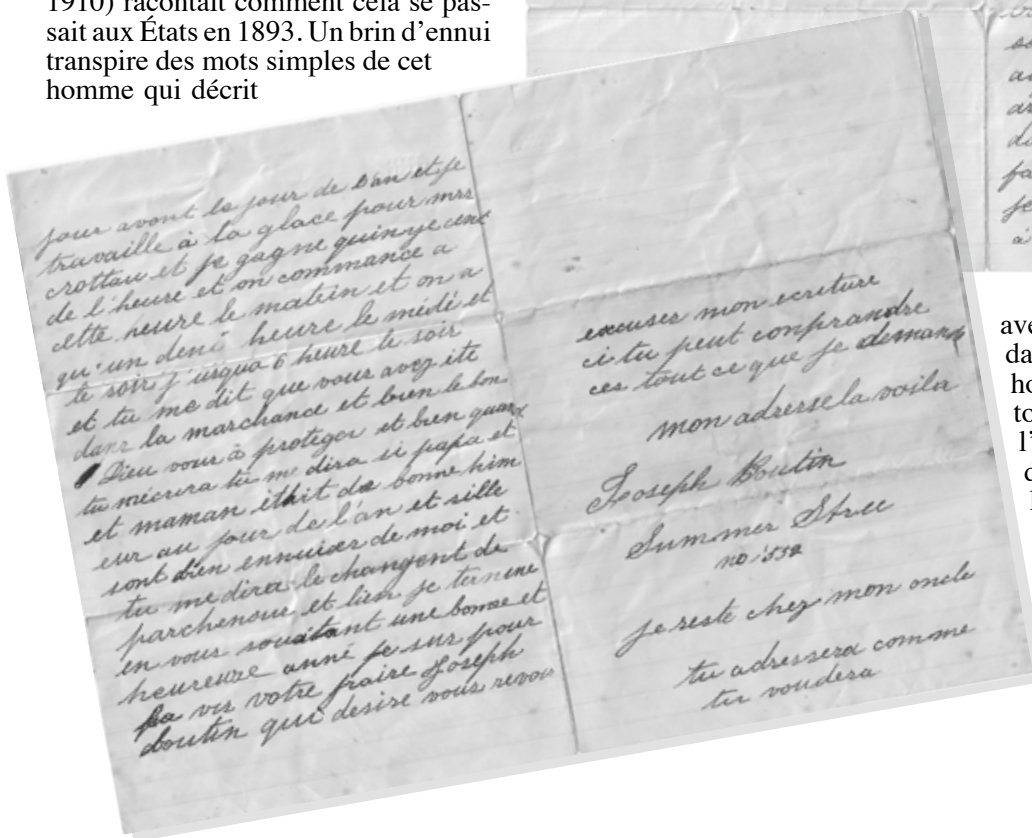 1910) racontait comment cela se pas-
sait aux États en 1893. Un brin d'ennui
transpire des mots simples de cet
homme qui décrit
jour avont le jour de l'an et je
travaille à la glace pour mrs
crottau et je gagne quinye cent
de l'heure et on commance a
cette heure le matein et on a
qu'un demi heure le médi et
le soir j'usqua 6 heure le soir
et tu me dit que vous avez ite
dans la marchance et bien le bon
Dieu vous à proteger et bien quand
tu mécrira tu me dira si papa et
et maman ithit de bonne him
eur au jour de l'an et sille
sont bien ennuier de moi et
tu me direz le changent de
et bien je termine
en vous souaitant une bonne et
heureuze anné je sur pour
la vis votre fraire Joseph
boutin qui desire vous revoir
excuser mon ecriture
ci tu peut conprandre
ces tout ce que je demand
mon adresse la voila
Joseph Boutin
Summer Stree
no
je reste chez mon oncle
tu adressera comme
tu voudera
ave
da
ho
to
l'
q